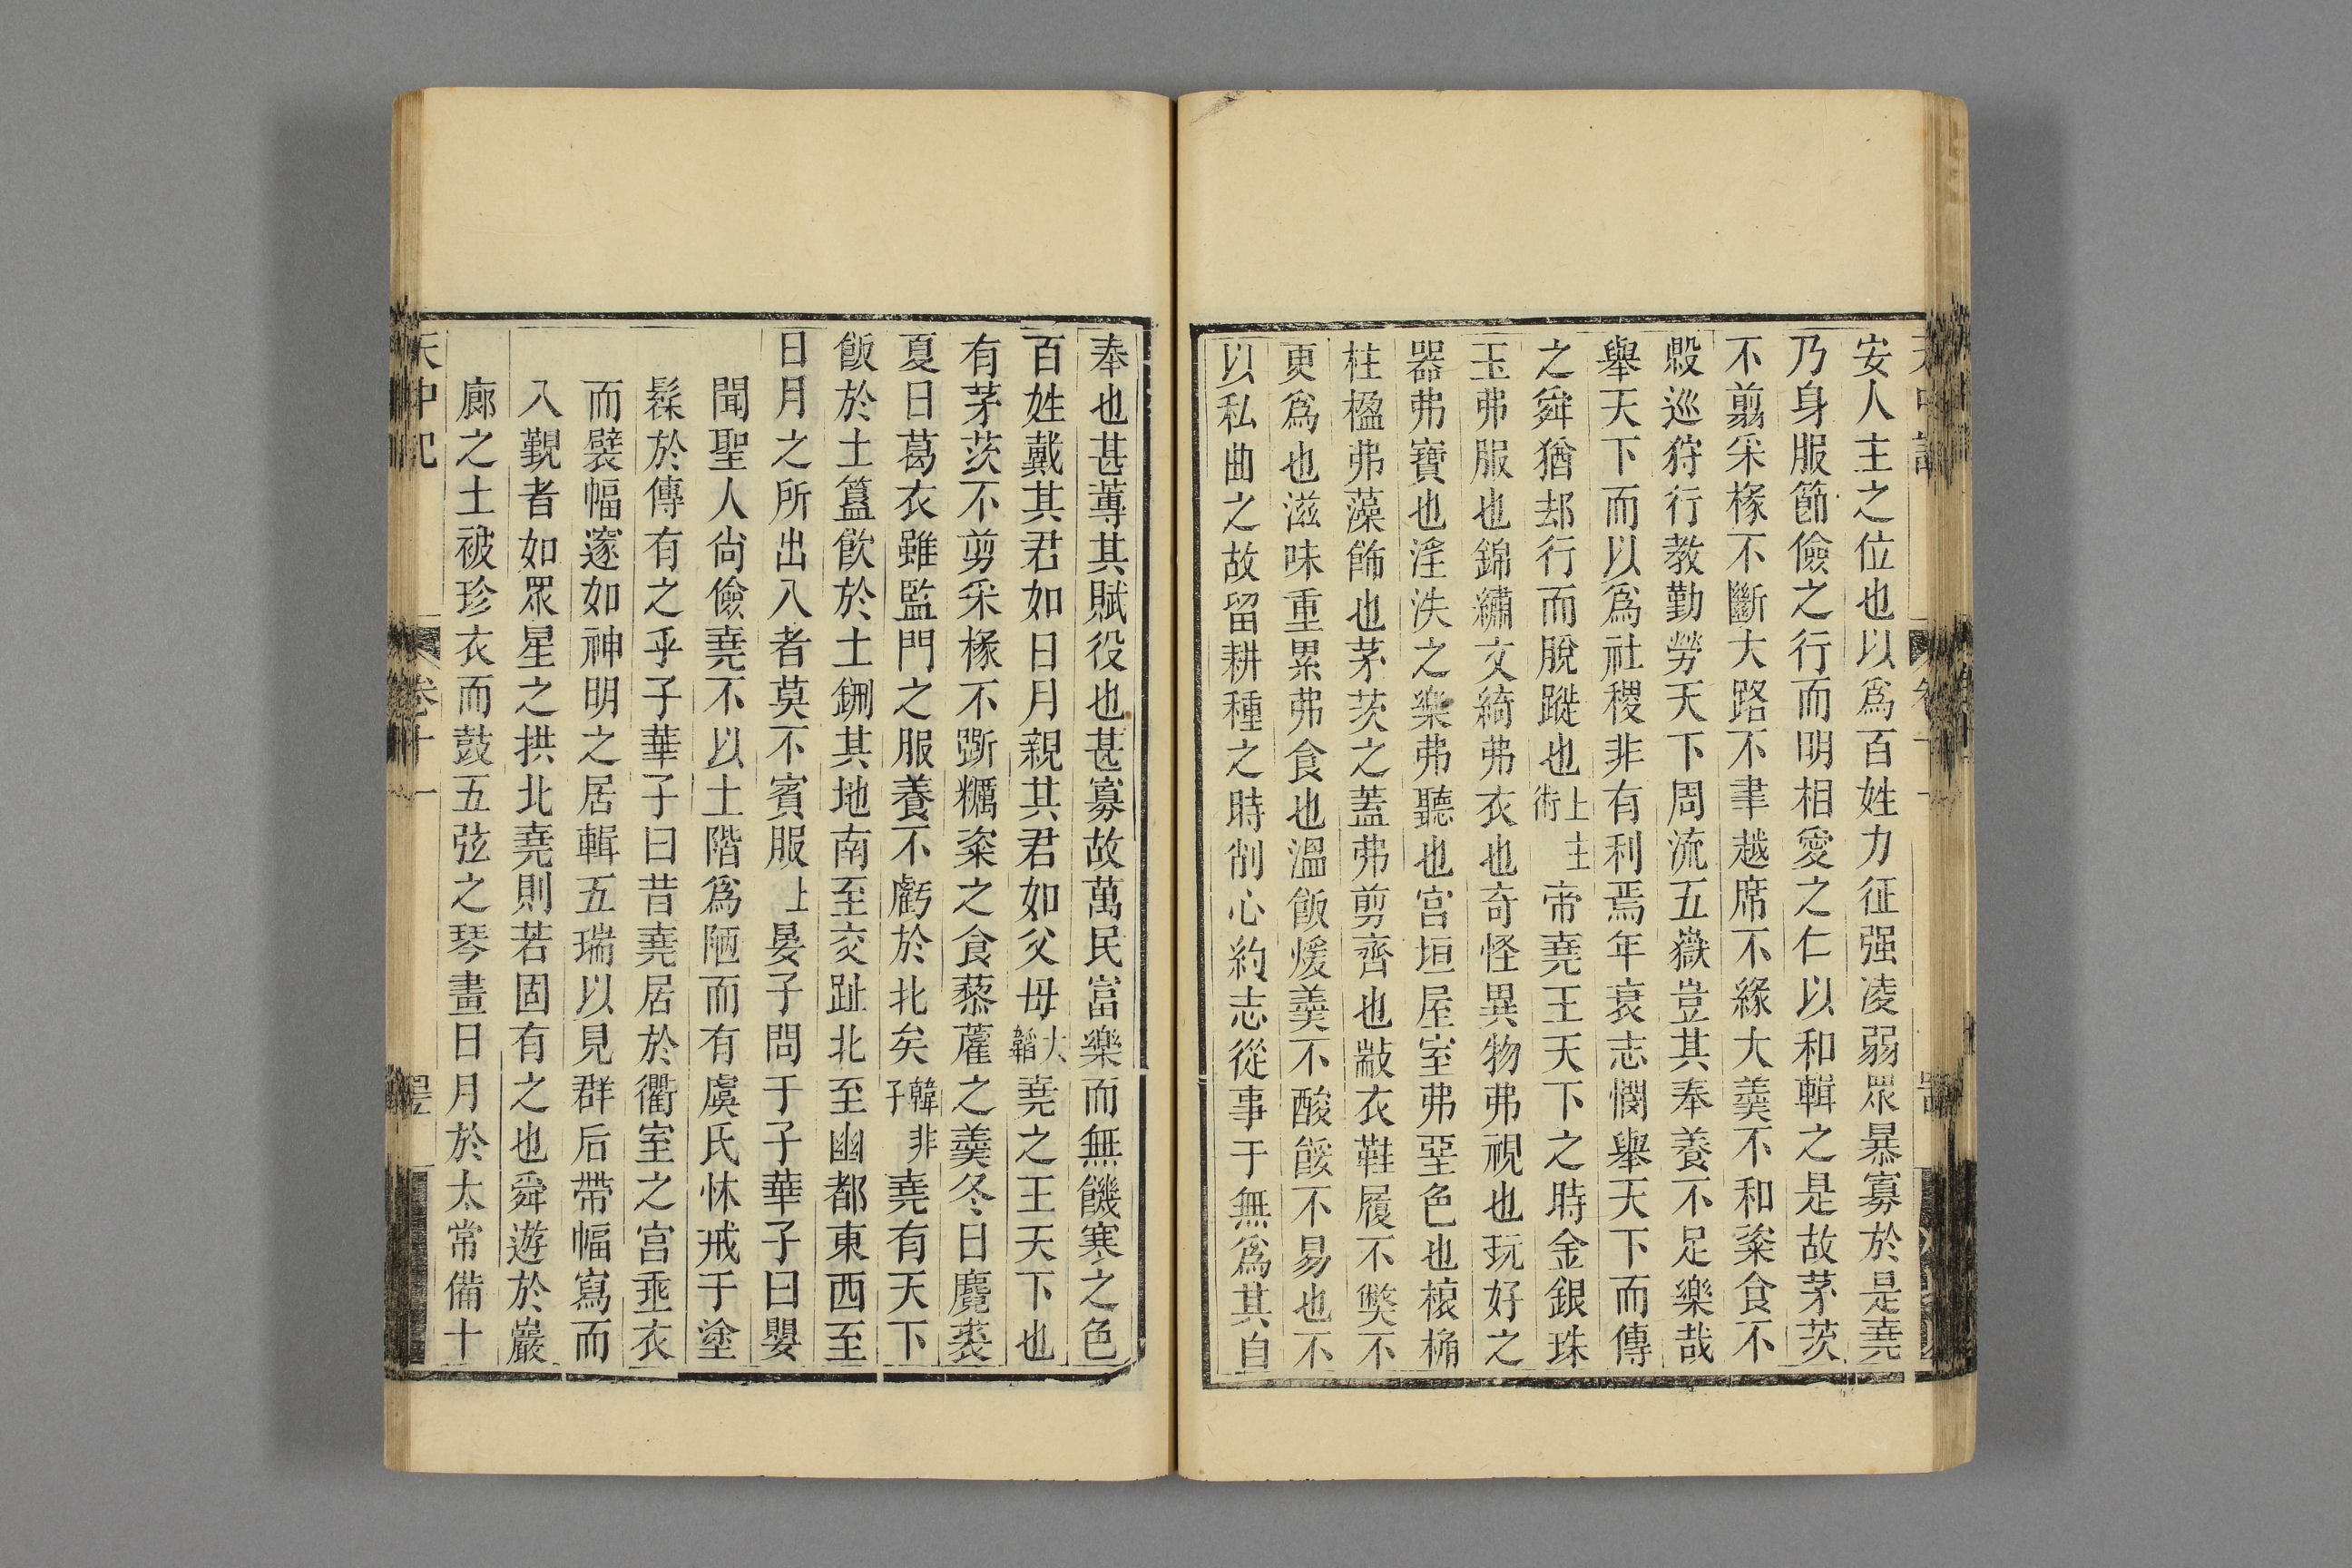 安人主之位也以爲百姓力征强凌弱眾暴寡於是堯
乃身服節儉之行而明相愛之仁以和輯之是故茅茨
不翦采椽不斷大路不畫越席不緣大羹不和粢食不
毇巡狩行教勤勞天下周流五嶽豈其奉養不足樂哉
舉天下而以爲社稷非有利焉年衰志憫舉天下而傳
之舜猶却行而脫蹝也上主術帝堯王天下之時金銀珠
玉弗服也錦繡文綺弗衣也奇怪異物弗視也玩好之
器弗寶也淫泆之樂弗聽也宮垣屋室弗堊色也榱桷
柱楹弗藻飾也茅茨之蓋弗剪齊也敝衣鞋履不獘不
更爲也滋味重累弗食也溫飯煖羹不酸餒不易也不
以私曲之故留耕種之時削心約志從事于無爲其自
奉也甚薄其賦役也甚寡故萬民富樂而無饑寒之色
百姓戴其君如日月親其君如父母太韜堯之王天下也
有茅茨不剪采椽不斲糲粢之食藜藿之羹冬日麑裘
夏日葛衣雖監門之服養不虧於此矣韓非子堯有天下
飯於土簋飲於土鉶其地南至交趾北至幽都東西至
日月之所出入者莫不賓服上晏子問于子華子曰嬰
聞聖人尚儉堯不以土階爲陋而有虞氏怵戒于塗
髹於傳有之乎子華子曰昔堯居於衢室之宮垂衣
而襞幅邃如神明之居輯五瑞以見群后帶幅寫而
入覲者如眾星之拱北堯則若固有之也舜遊於巖
廊之土被珍衣而鼓五弦之琴畫日月於太常備十
天中記 卷十一